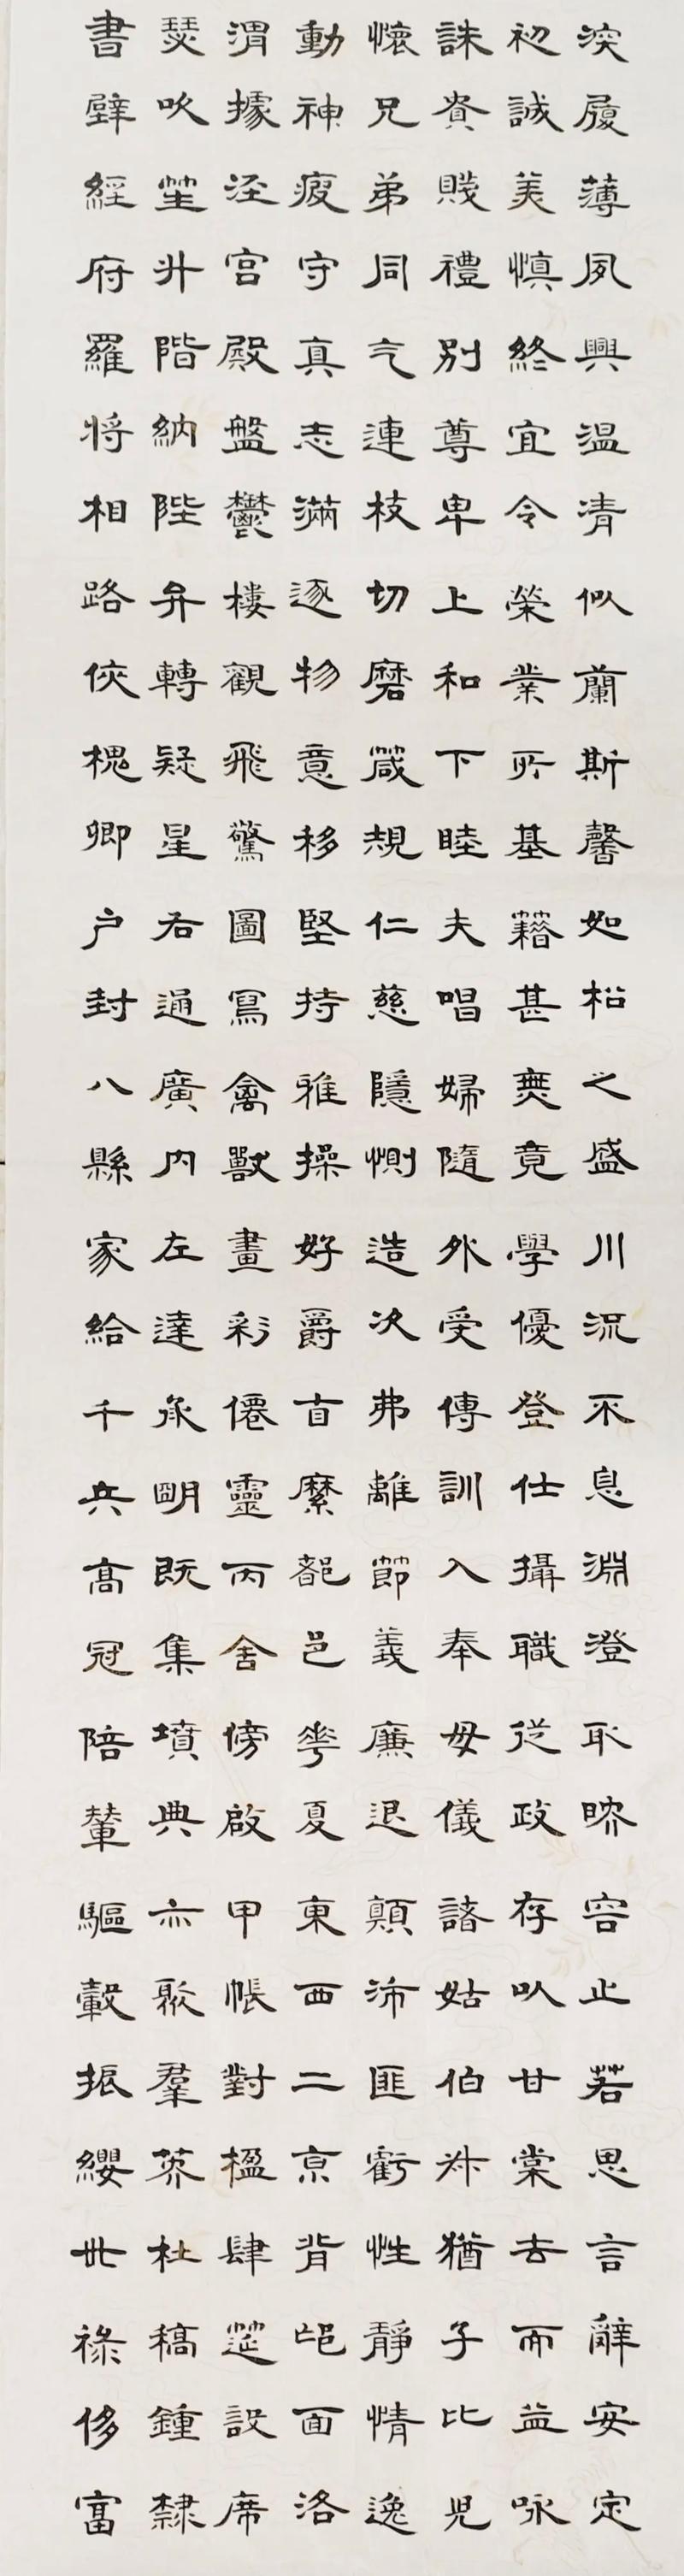 深履薄夙興温清似蘭斯馨如松之盛川流不息淵澄取暎容止若思言辭安定
初誠美慎終宜令榮業所基藉甚無竟學優登仕攝職從政存以甘棠去而益咏
誅貴賤禮別尊卑上和下睦夫唱婦隨外受傳訓入奉母儀諸姑伯叔猶子比兒
懷兄弟同气連枝切磨箴規仁慈隱惻造次弗離節義廉退顛沛匪虧性靜情逸
動神疲守真志滿逐物意移堅持雅操好爵自縻都邑華夏東西二京背邙面洛
渭據涇宮殿盤鬱樓觀飛驚圖寫禽獸畫彩僊靈丙舍傍啟甲帳對楹肆筵設席
瑟吹笙升階納陛弁轉疑星右通廣内左達承明既集墳典亦聚羣英杜稿鍾隸
書壁經府羅將相路俠槐卿户封八縣家給千兵高冠陪輦驅轂振纓世祿侈富